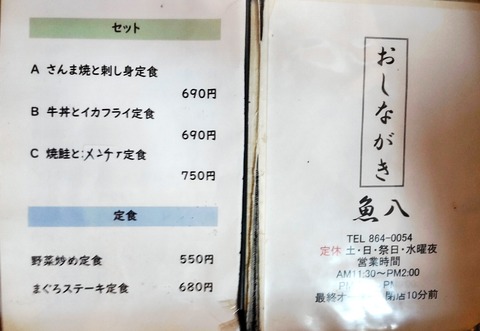 セット
A さんま焼と刺し身定食
690円
B 牛丼とイカフライ定食
690円
C 焼鮭とメンチァ定食
750円
定食
野菜炒め定食 550円
まぐろステーキ定食 680円
おしながき
魚八
TEL 864-0054
定休 土・日・祭日・水曜夜
営業時間
AM11:30~PM2:00
最終オー 閉店10分前